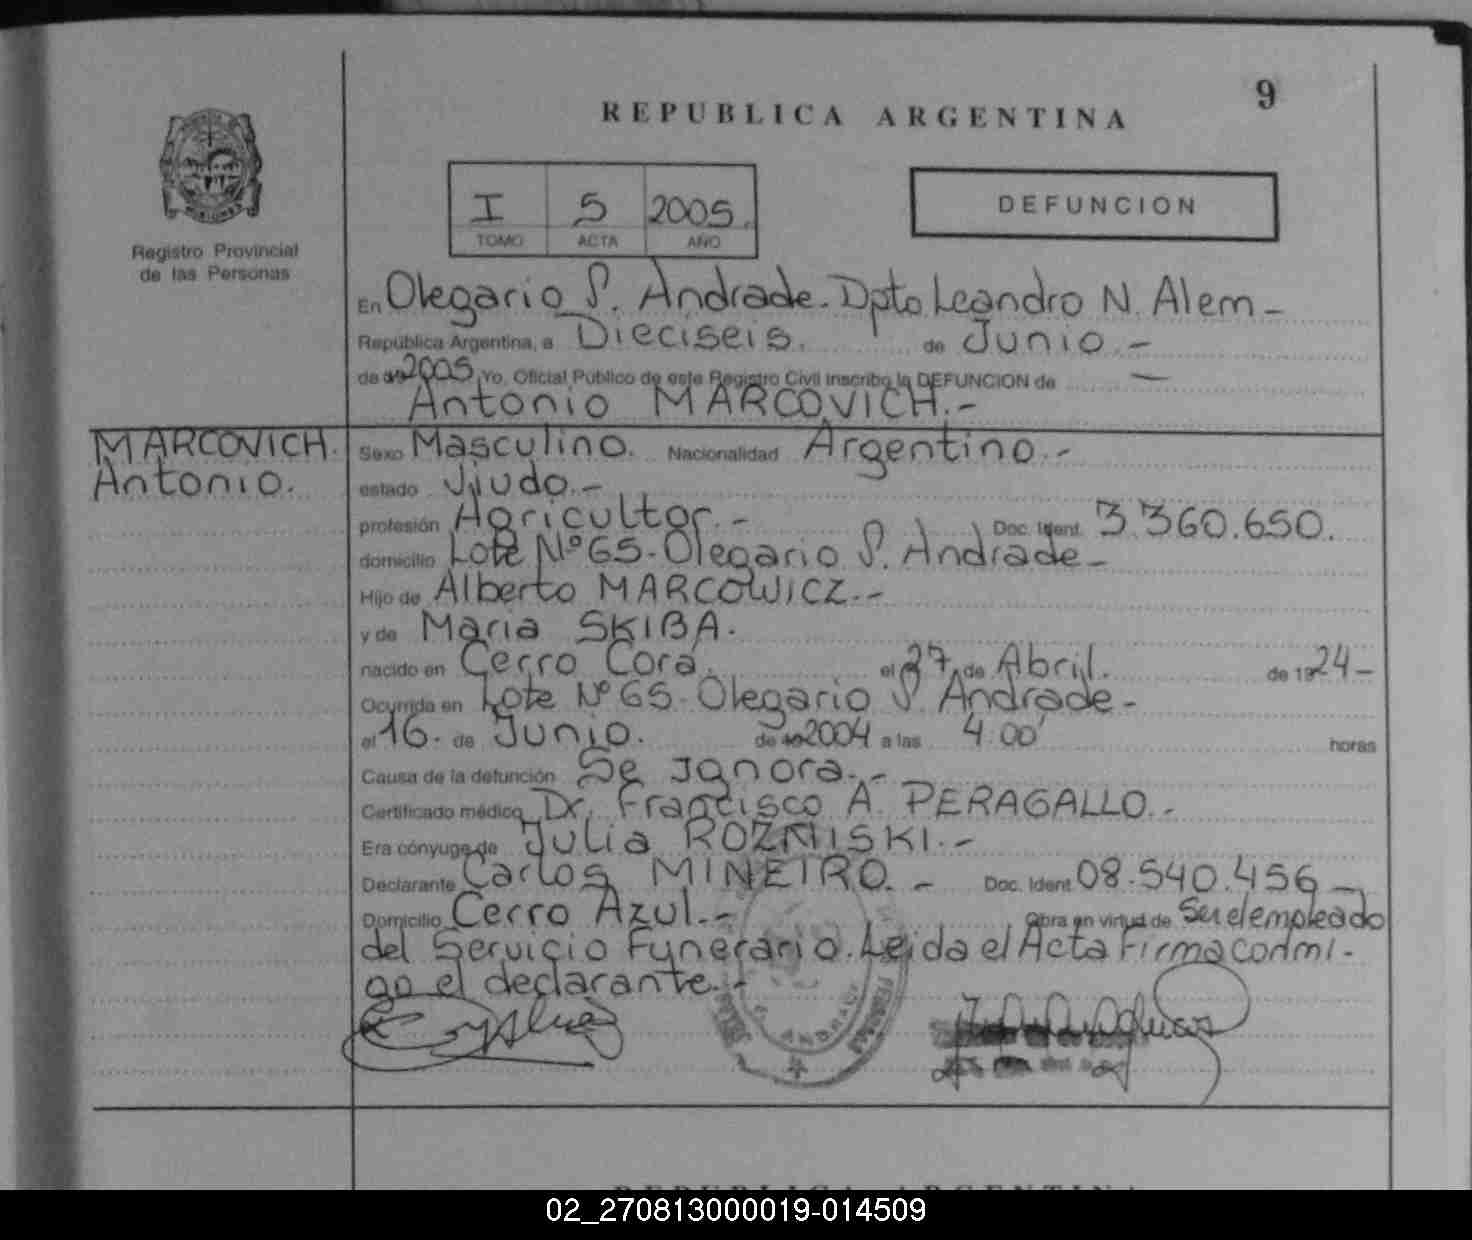 9
REPUBLICA ARGENTINA
I 5 2005.
TOMO ACTA AÑO
DEFUNCION
Registro Provincial
de las Personas
En Olegario V. Andrade. Dpto. Leandro N. Alem -
República Argentina, a Dieciseis. de Junio.-
de 2005 Yo, Oficial Público de este Registro Civil inscribo la DEFUNCION de —
Antonio MARCOVICH.-
MARCOVICH.
Antonio.
Sexo Masculino. Nacionalidad Argentino.-
estado Viudo.-
profesión Agricultor.- Doc. Ident. 3.360.650.
domicilio Lote Nº 65-Olegario V. Andrade-
Hijo de Alberto MARCOWICZ.-
y de Maria SKIBA.
nacido en Cerro Cora. el 27, de Abril. de 1924-
Ocurrida en Lote Nº 65-Olegario V Andrade-
el 16. de Junio. de 2004 a las 4:00' horas
Causa de la defunción Se ignora.-
Certificado médico Dr. Francisco A. PERAGALLO.-
Era cónyuge de Julia ROZNISKI.-
Declarante Carlos MINEIRO.- Doc. Ident. 08.540.456-
Domicilio Cerro Azul.- Obra en virtud de Ser el empleado
del Servicio Funerario. Leida el Acta Firma conmi-
go el declarante.-
REPUBLICA ARGENTINA
02_270813000019-014509